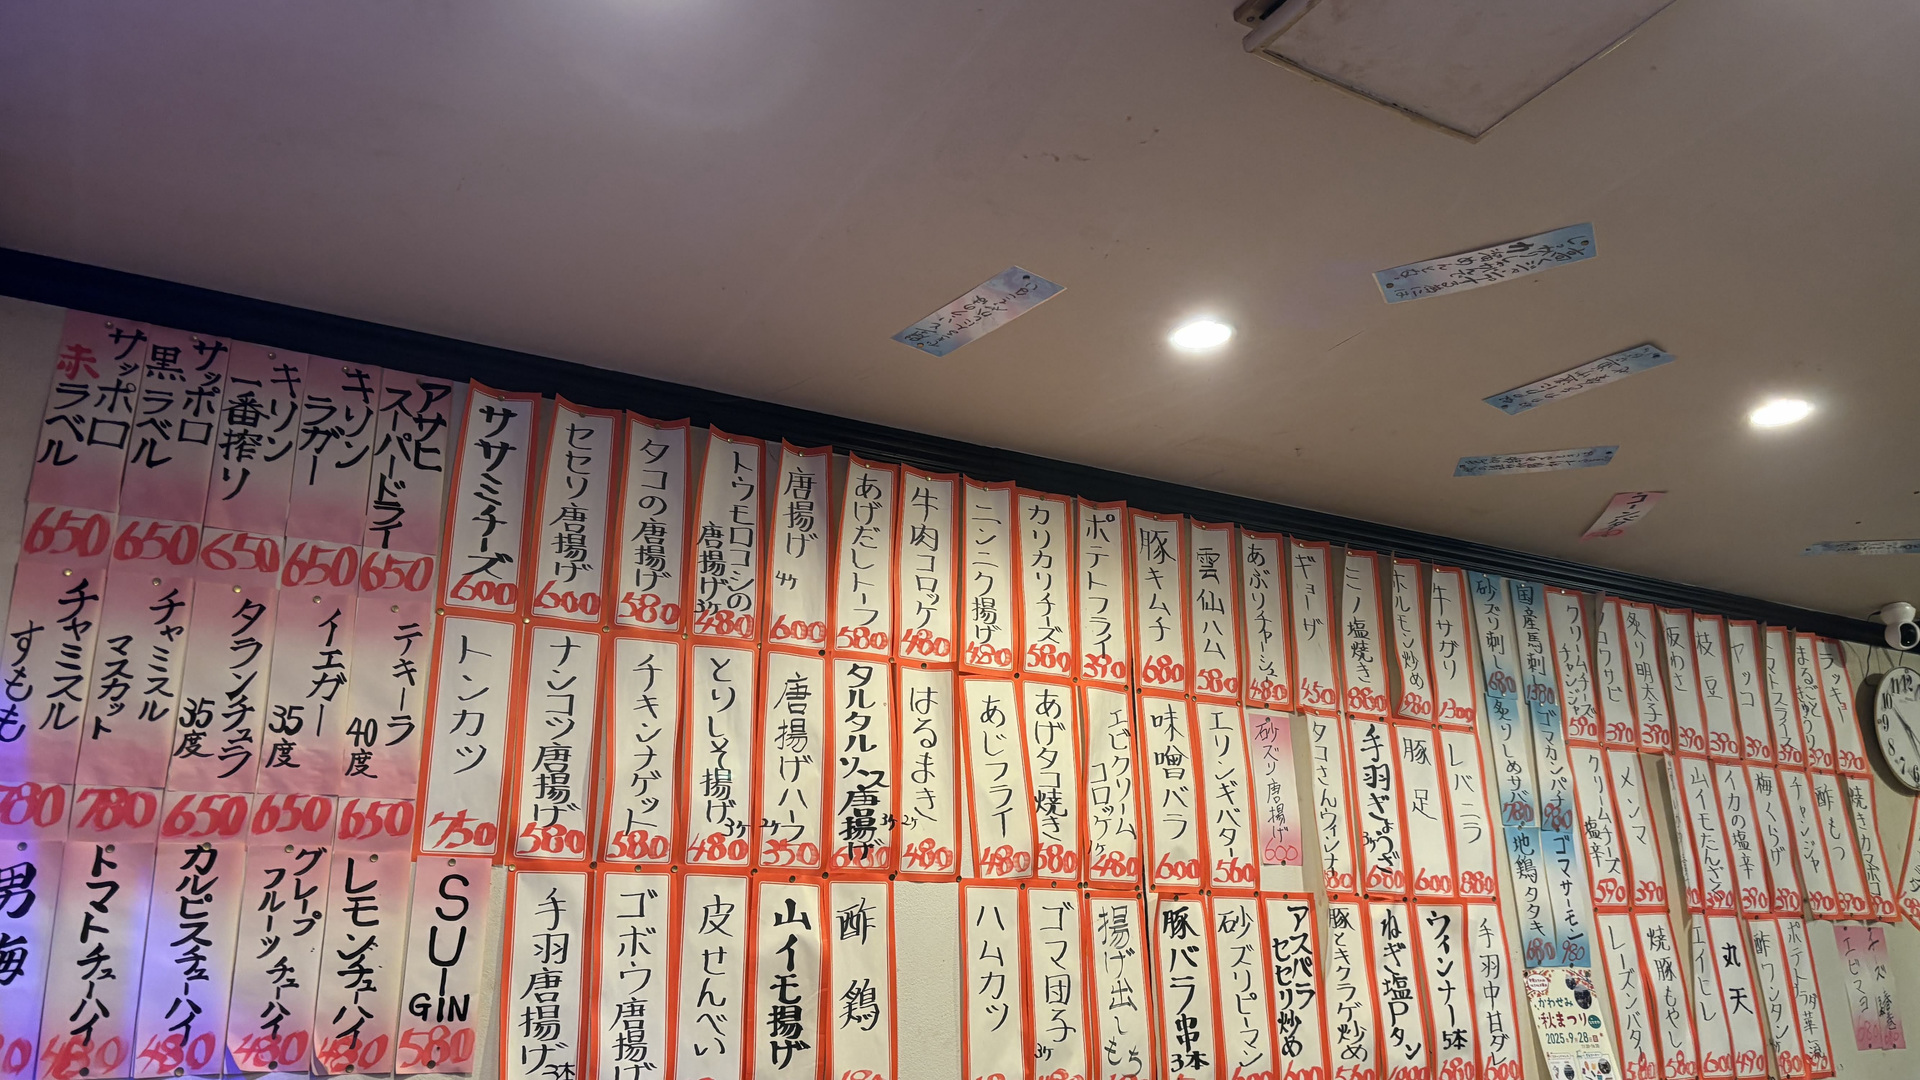 サッポロ
赤ラベル
650
サッポロ
黒ラベル
650
キリン
一番搾り
650
キリン
ラガー
650
アサヒ
スーパードライ
650
チャミスル
すもも
780
チャミスル
マスカット
780
タランチュラ
35度
650
イエガー
35度
650
テキーラ
40度
650
男梅
トマトチューハイ
480
カルピスチューハイ
480
グレープ
フルーツチューハイ
480
レモンチューハイ
480
SUI
GIN
580
ササミチーズ
600
セセリ唐揚げ
600
タコの唐揚げ
580
トウモロコシの
唐揚げ3ケ
480
唐揚げ
4ケ
600
あげだしトーフ
580
牛肉コロッケ
480
ニンニク揚げ
480
カリカリチーズ
580
ポテトフライ
390
豚キムチ
680
雲仙ハム
580
あぶりチャーシュー
480
ギョーザ
450
ミノ塩焼き
880
ホルモン炒め
980
牛サガリ
1300
砂ズリ刺し
680
国産馬刺し
1380
クリームチーズ
チャンジャ
590
コワサビ
390
炙り明太子
390
板わさ
390
枝豆
390
ヤッコ
390
トマトスライス
390
まるごときゅうり
390
ラッキョー
390
トンカツ
750
ナンコツ唐揚げ
580
チキンナゲット
580
とりしそ揚げ
3ケ
480
唐揚げハーフ
2ケ
350
タルタルソース唐揚げ
3ケ
680
はるまき
2ケ
480
あじフライ
480
あげタコ焼き
580
エビクリーム
コロッケ
1ケ
480
味噌バラ
600
エリンギバター
560
砂ズリ唐揚げ
600
タコさんウィンナー
手羽ぎょうざ
3ケ
680
豚足
600
レバニラ
880
炙りしめサバ
780
ゴマカンパチ
980
クリームチーズ
塩辛
590
メンマ
390
山イモたんざく
390
イカの塩辛
390
梅くらげ
390
チャンジャ
390
酢もつ
390
焼きカマボコ
390
手羽唐揚げ
3本
ゴボウ唐揚げ
皮せんべい
山イモ揚げ
酢鶏
ハムカツ
ゴマ団子
3ケ
揚げ出しもち
豚バラ串
3本
砂ズリピーマン
アスパラ
セセリ炒め
豚とキクラゲ炒め
ねぎ塩Pタン
ウィンナー
5本
手羽中甘ダレ
地鶏タタキ
680
ゴマサーモン
980
レーズンバター
580
焼豚もやし
580
エイヒレ
600
丸天
490
酢ワンタン
480
エビマヨ
かわせみ
秋まつり
2025年9月28日